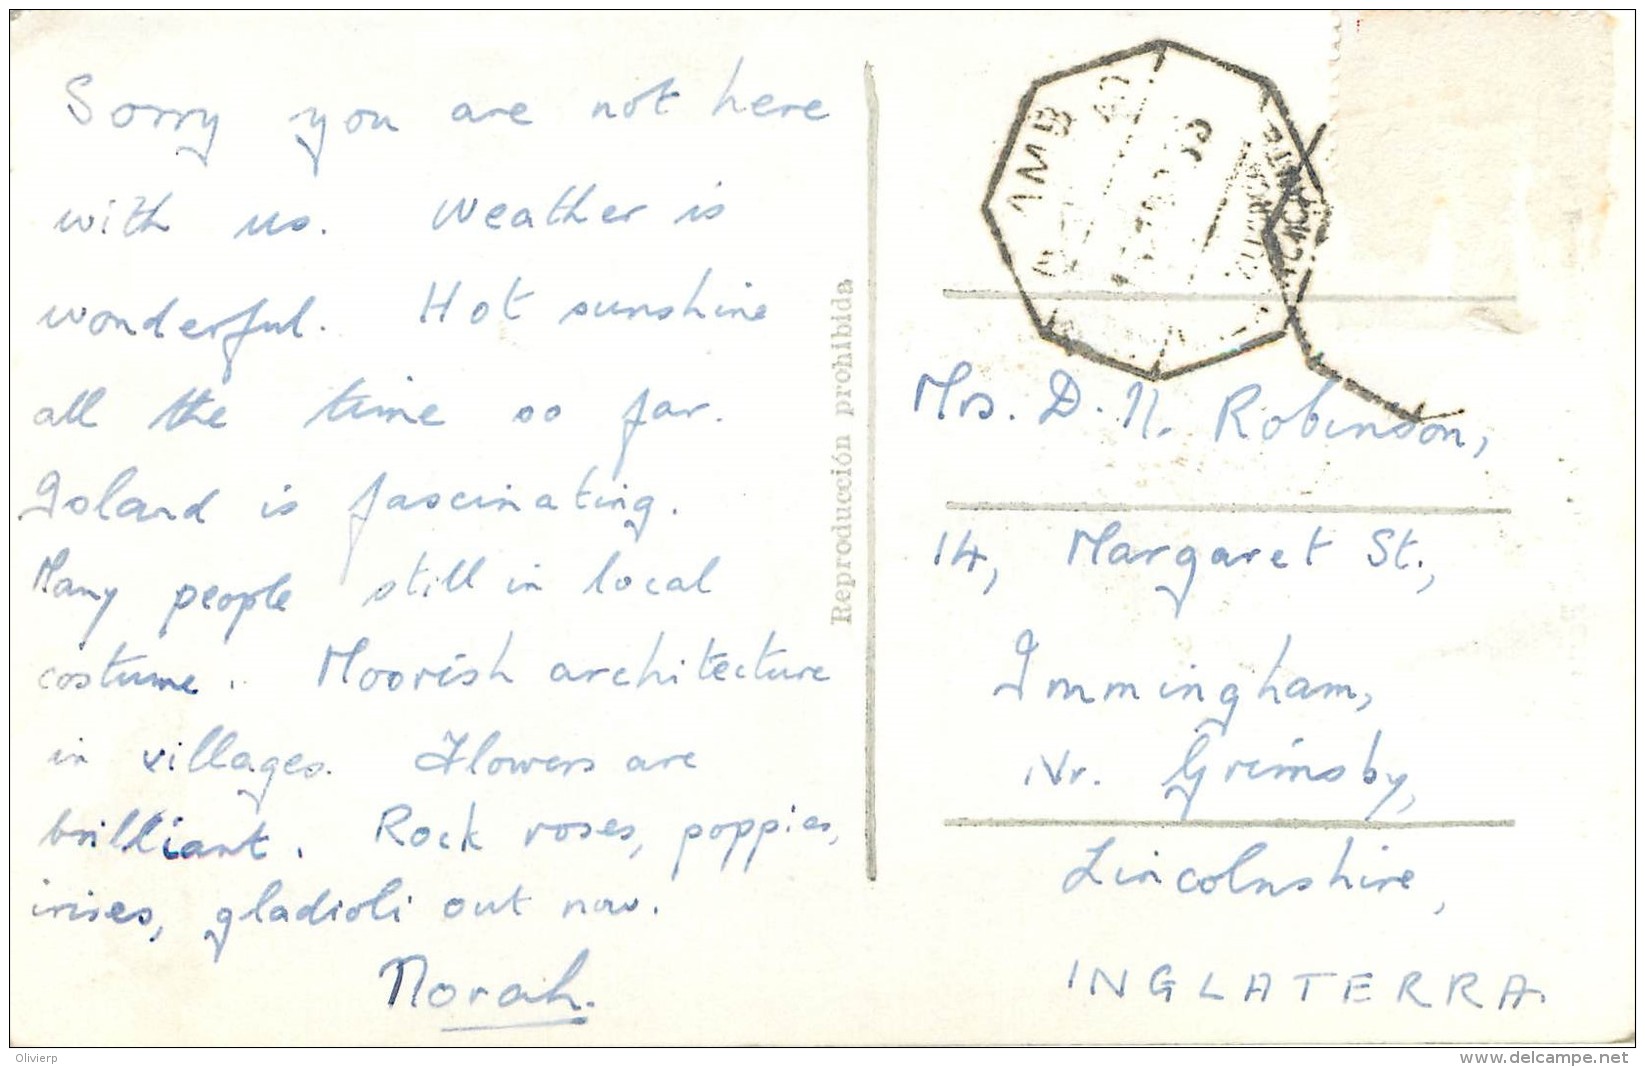 Sorry you are not here
with us. Weather is
wonderful. Hot sunshine
all the time so far.
Island is fascinating.
Many people still in local
costume. Moorish architecture
in villages. Flowers are
brilliant. Rock roses, poppies,
irises, gladioli out now.
Norah.
Reproducción prohibida
AMB
Mrs. D. N. Robinson,
14, Margaret St.,
Immingham,
Nr. Grimsby,
Lincolnshire,
INGLATERRA.
Olivierp
www.delcampe.net